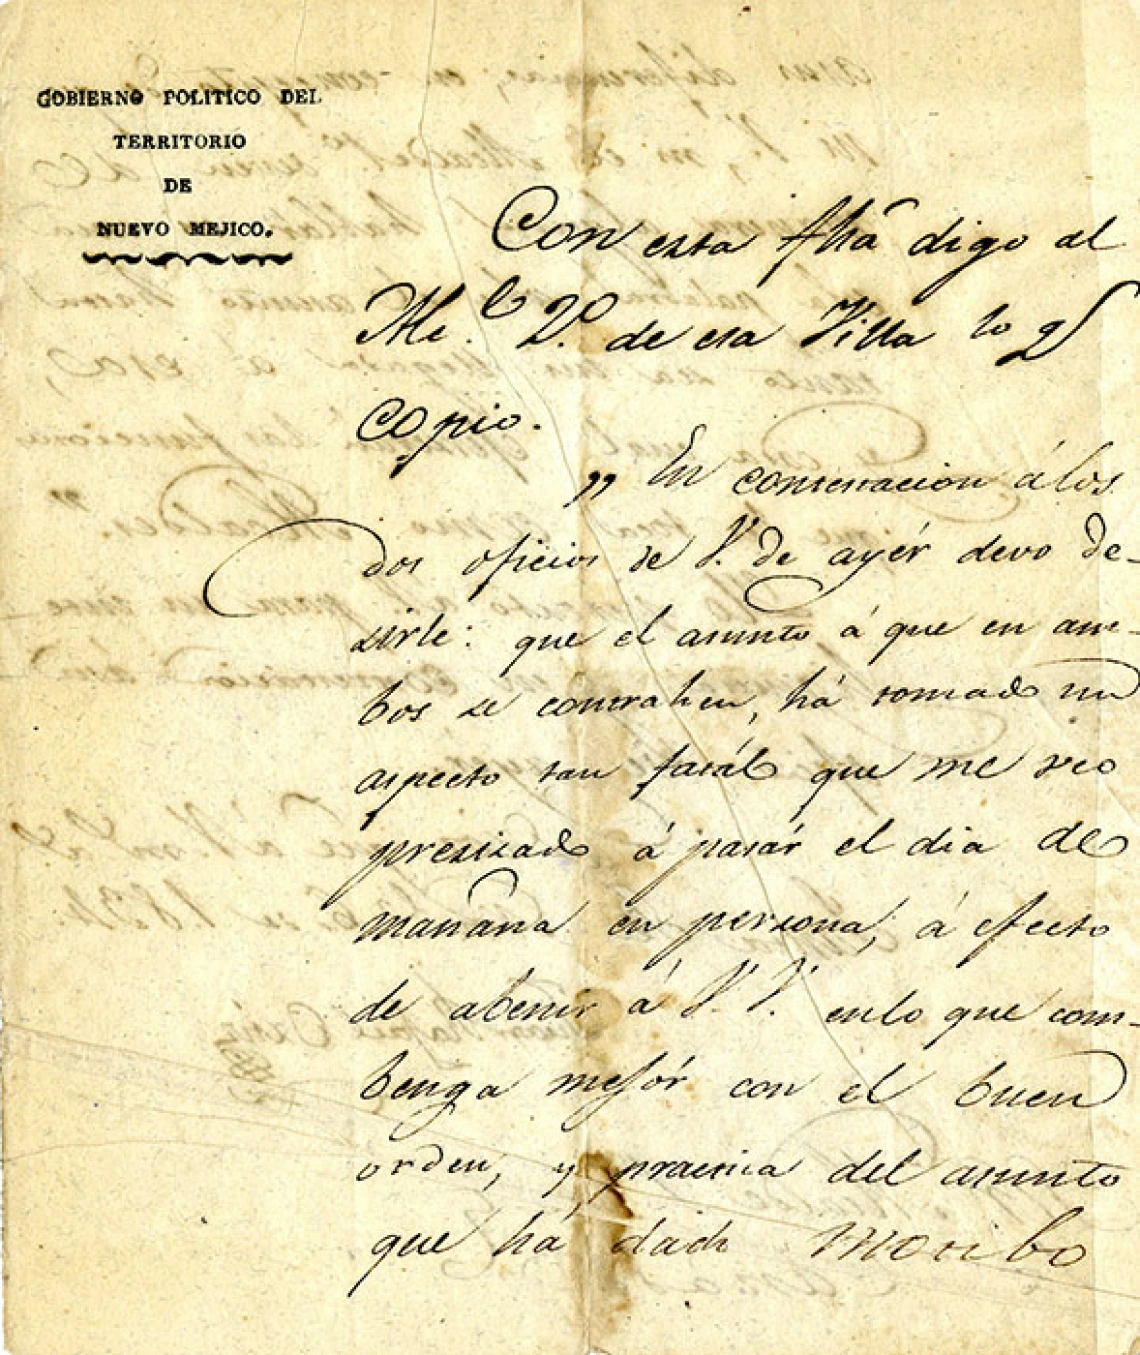 GOBIERNO POLITICO DEL
TERRITORIO
DE
NUEVO MEJICO.
Con esta fhã digo al
Ale.l 2.o de esa Villa lo q
copio.
,, En contestacion á los
dos oficios de V. de ayér devo de-
zirle: que el asunto á que en am-
bos se contrahen, há tomado un
aspecto tan fatál que me veo
presizado á pasár el dia de
mañana en persona, á efecto
de abenir á V. V. enlo que com-
benga mejór con el buen
orden, y practica del asunto
que há dado motibo